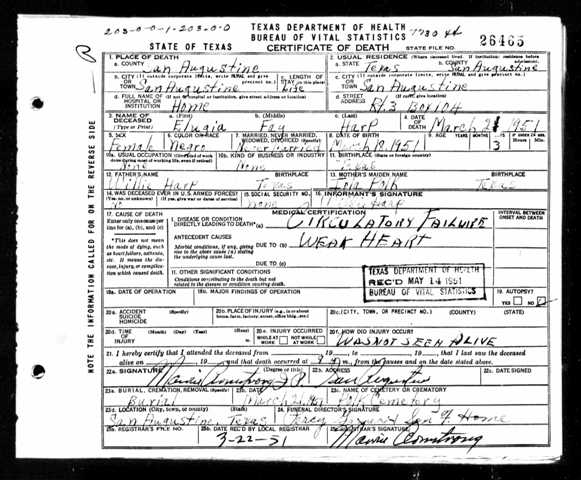 203-0-0-1-203-0-0
TEXAS DEPARTMENT OF HEALTH
BUREAU OF VITAL STATISTICS
STATE OF TEXAS CERTIFICATE OF DEATH STATE FILE NO. 26465
1. PLACE OF DEATH 2. USUAL RESIDENCE (Where deceased lived. If institution: residence before admission)
a. COUNTY San Augustine a. STATE Texas b. COUNTY San Augustine
b. CITY (If outside corporate limits, write RURAL and give precinct no.) OR TOWN San Augustine c. LENGTH OF STAY Life c. CITY (If outside corporate limits, write RURAL and give precinct no.) OR TOWN San Augustine
d. FULL NAME OF (If not in hospital or institution, give street address or location) HOSPITAL OR INSTITUTION Home d. STREET ADDRESS Rt. 3 Box 104
3. NAME OF DECEASED (Type or Print) a. (First) b. (Middle) Fay c. (Last) Harp 4. DATE OF DEATH March 1951
5. SEX Female 6. COLOR OR RACE Negro 7. MARRIED, NEVER MARRIED, WIDOWED, DIVORCED (Specify) Never Married 8. DATE OF BIRTH March 18, 1951 9. AGE YEARS MONTHS DAYS 3
10a. USUAL OCCUPATION None 10b. KIND OF BUSINESS OR INDUSTRY None 11. BIRTHPLACE (State or foreign country) Texas
12. FATHER'S NAME Willie Harp BIRTHPLACE Texas 13. MOTHER'S MAIDEN NAME Polk BIRTHPLACE Texas
14. WAS DECEASED EVER IN U.S. ARMED FORCES? 15. SOCIAL SECURITY NO. None 16. INFORMANT'S SIGNATURE Harp
17. CAUSE OF DEATH MEDICAL CERTIFICATION INTERVAL BETWEEN ONSET AND DEATH
Enter only one cause per line for (a), (b), and (c)
I. DISEASE OR CONDITION DIRECTLY LEADING TO DEATH* (a) CIRCULATORY FAILURE
ANTECEDENT CAUSES
DUE TO (b) WEAK HEART
*This does not mean the mode of dying, such as heart failure, asthenia, etc. It means the disease, injury, or complication which caused death.
Morbid conditions, if any, giving rise to the above cause (a) stating the underlying cause last.
DUE TO (c)
II. OTHER SIGNIFICANT CONDITIONS
Conditions contributing to the death but not related to the disease or condition causing death.
TEXAS DEPARTMENT OF HEALTH
REC'D MAY 14 1951
BUREAU OF VITAL STATISTICS
18a. DATE OF OPERATION 18b. MAJOR FINDINGS OF OPERATION 19. AUTOPSY? YES NO
20a. ACCIDENT SUICIDE HOMICIDE 20b. PLACE OF INJURY 20c. (CITY, TOWN, OR PRECINCT NO.) (COUNTY) (STATE)
20d. TIME OF INJURY 20e. INJURY OCCURRED WHILE AT WORK NOT WHILE AT WORK 20f. HOW DID INJURY OCCUR? WAS NOT SEEN ALIVE
21. I hereby certify that I attended the deceased from 19 , to 19 , that I last saw the deceased
alive on 19 , and that death occurred at from the causes and on the date stated above.
22a. SIGNATURE (Degree or title) 22b. ADDRESS 22c. DATE SIGNED
Armstrong J.P. San Augustine
23a. BURIAL, CREMATION, REMOVAL (Specify) Burial 23b. DATE March 21, 1951 23c. NAME OF CEMETERY OR CREMATORY Polk Cemetery
23d. LOCATION (City, town, or county) (State) San Augustine, Texas 24. FUNERAL DIRECTOR'S SIGNATURE Home
25a. REGISTRAR'S FILE NO. 25b. DATE REC'D BY LOCAL REGISTRAR 3-22-51 25c. REGISTRAR'S SIGNATURE Armstrong
NOTE THE INFORMATION CALLED FOR ON THE REVERSE SIDE